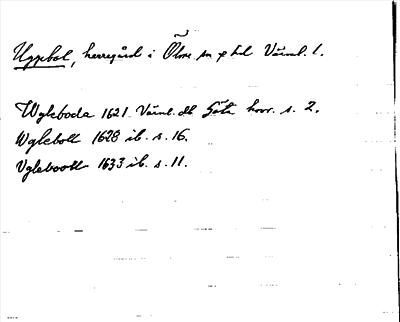 Uggebol, herregård i Ölme sn o hd Värml. l.
Wgleboda 1621 Värml. db Göta hovr. s. 2.
Wglebolt 1628 ib. s. 16.
Vgleboott 1633 ib. s. 11.